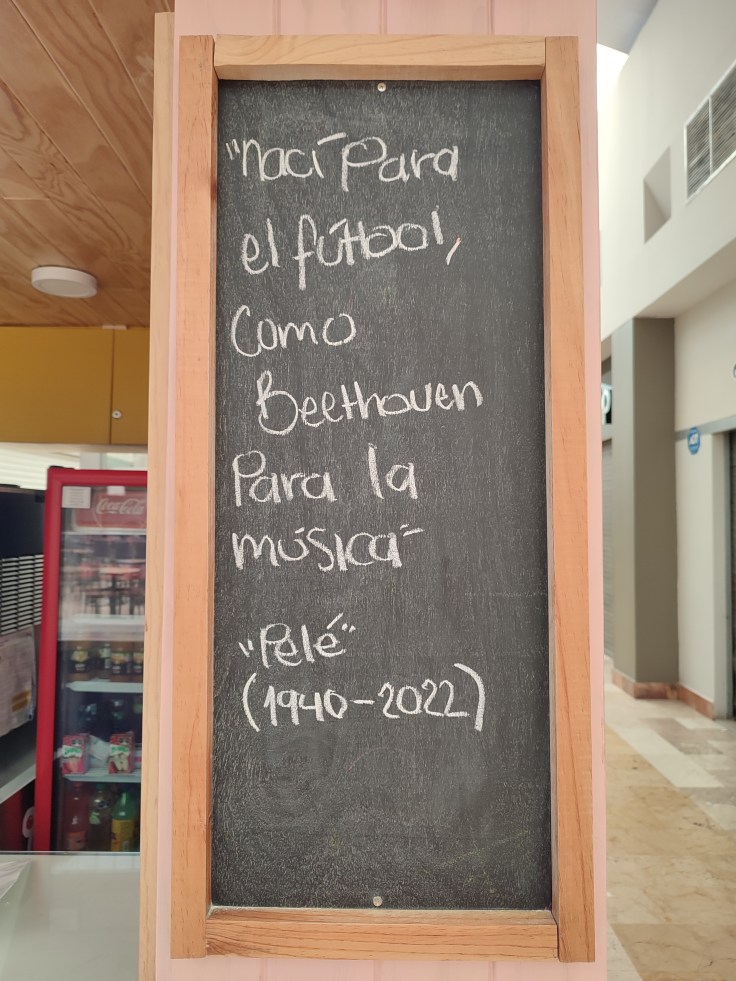 "Nací Para
el fútbol,
Como
Beethoven
Para la
música"
"Pelé"
(1940-2022)
Coca-Cola